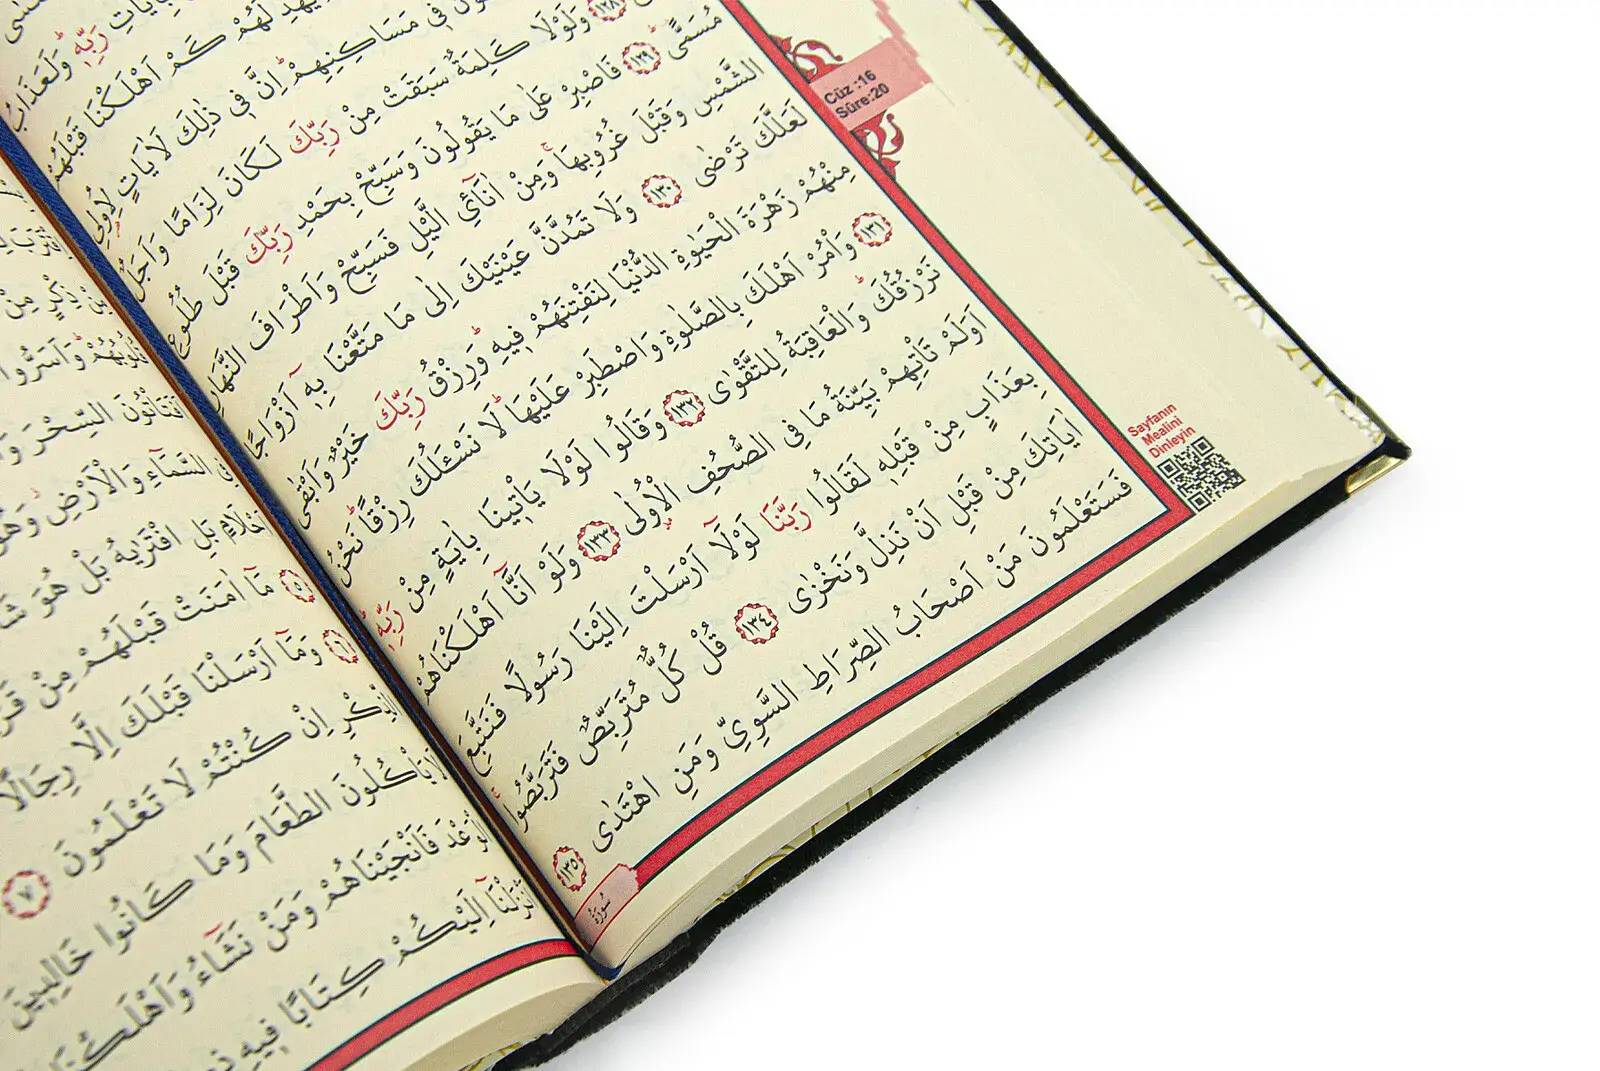 بِاٰيَاتِ رَبِّه۪ۜ وَلَعَذَابُ
لَهُمْ كَمْ اَهْلَكْنَا قَبْلَهُمْ
ف۪ي مَسَاكِنِهِمْۜ اِنَّ ف۪ي ذٰلِكَ لَاٰيَاتٍ لِاُو۬لِي
١٢٨ وَلَوْلَا كَلِمَةٌ سَبَقَتْ مِنْ رَبِّكَ لَكَانَ لِزَامًا وَاَجَلٌ
مُسَمًّىۜ ١٢٩ فَاصْبِرْ عَلٰى مَا يَقُولُونَ وَسَبِّحْ بِحَمْدِ رَبِّكَ قَبْلَ طُلُوعِ
الشَّمْسِ وَقَبْلَ غُرُوبِهَاۚ وَمِنْ اٰنَٓائِ الَّيْلِ فَسَبِّحْ وَاَطْرَافَ النَّهَارِ
لَعَلَّكَ تَرْضٰى ١٣٠ وَلَا تَمُدَّنَّ عَيْنَيْكَ اِلٰى مَا مَتَّعْنَا بِه۪ٓ اَزْوَاجًا
مِنْهُمْ زَهْرَةَ الْحَيٰوةِ الدُّنْيَا لِنَفْتِنَهُمْ ف۪يهِۜ وَرِزْقُ رَبِّكَ خَيْرٌ وَاَبْقٰى
١٣١ وَأْمُرْ اَهْلَكَ بِالصَّلٰوةِ وَاصْطَبِرْ عَلَيْهَاۜ لَا نَسْـَٔلُكَ رِزْقًاۜ نَحْنُ
نَرْزُقُكَۜ وَالْعَاقِبَةُ لِلتَّقْوٰى ١٣٢ وَقَالُوا لَوْلَا يَأْت۪ينَا بِاٰيَةٍ مِنْ رَبِّه۪ۜ
اَوَلَمْ تَأْتِهِمْ بَيِّنَةُ مَا فِي الصُّحُفِ الْاُو۫لٰى ١٣٣ وَلَوْ اَنَّٓا اَهْلَكْنَاهُمْ
بِعَذَابٍ مِنْ قَبْلِه۪ لَقَالُوا رَبَّنَا لَوْلَٓا اَرْسَلْتَ اِلَيْنَا رَسُولًا فَنَتَّبِعَ
اٰيَاتِكَ مِنْ قَبْلِ اَنْ نَذِلَّ وَنَخْزٰى ١٣٤ قُلْ كُلٌّ مُتَرَبِّصٌ فَتَرَبَّصُواۚ
فَسَتَعْلَمُونَ مَنْ اَصْحَابُ الصِّرَاطِ السَّوِيِّ وَمَنِ اهْتَدٰى
١٣٥
سُورَةُ
Cüz :16
Sûre:20
Sayfanın
Mealini
Dinleyin
ذِكْرٍ مِنْ
وَاَسَرُّوا
السِّحْرَ
فِي السَّمَٓاءِ وَالْاَرْضِۘ وَهُوَ
اَحْلَامٍ بَلِ افْتَرٰيهُ بَلْ هُوَ
٥ مَٓا اٰمَنَتْ قَبْلَهُمْ مِنْ
٦ وَمَٓا اَرْسَلْنَا قَبْلَكَ اِلَّا رِجَالًا
الذِّكْرِ اِنْ كُنْتُمْ لَا تَعْلَمُونَ ٧
لَا يَأْكُلُونَ الطَّعَامَ وَمَا كَانُوا خَالِد۪ينَ
الْوَعْدَ فَاَنْجَيْنَاهُمْ وَمَنْ نَشَٓاءُ وَاَهْلَكْنَا
اَنْزَلْنَٓا اِلَيْكُمْ كِتَابًا ف۪يهِ